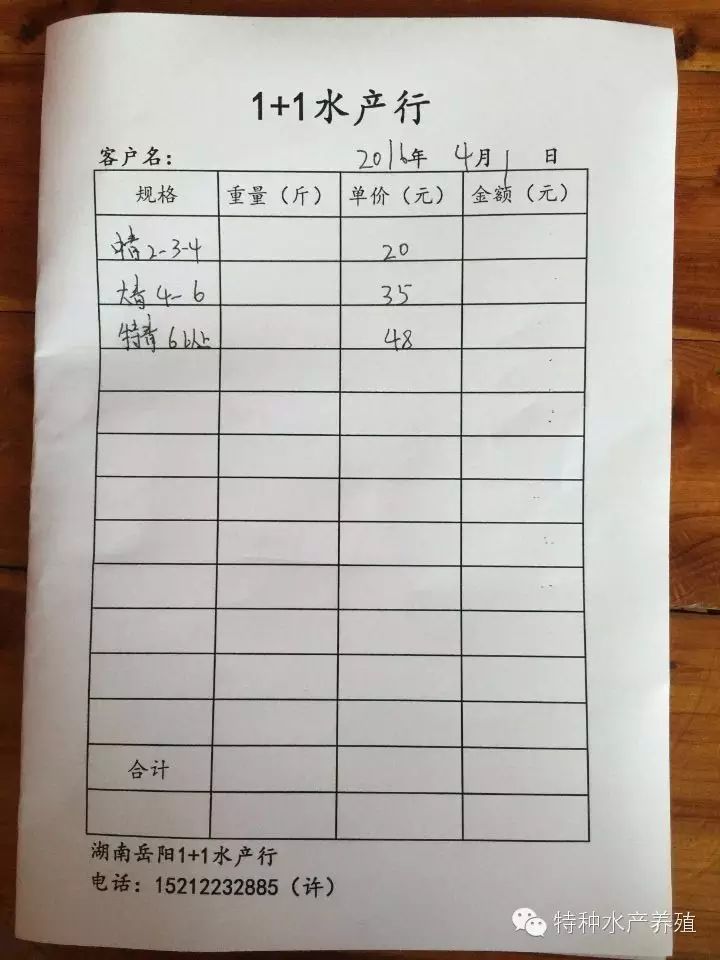 1+1水产行
客户名： 2016年 4月1日
规格 重量（斤） 单价（元） 金额（元）
中青2-3-4 20
大青4-6 35
特青6以上 48
合计
湖南岳阳1+1水产行
电话：15212232885（许）
特种水产养殖